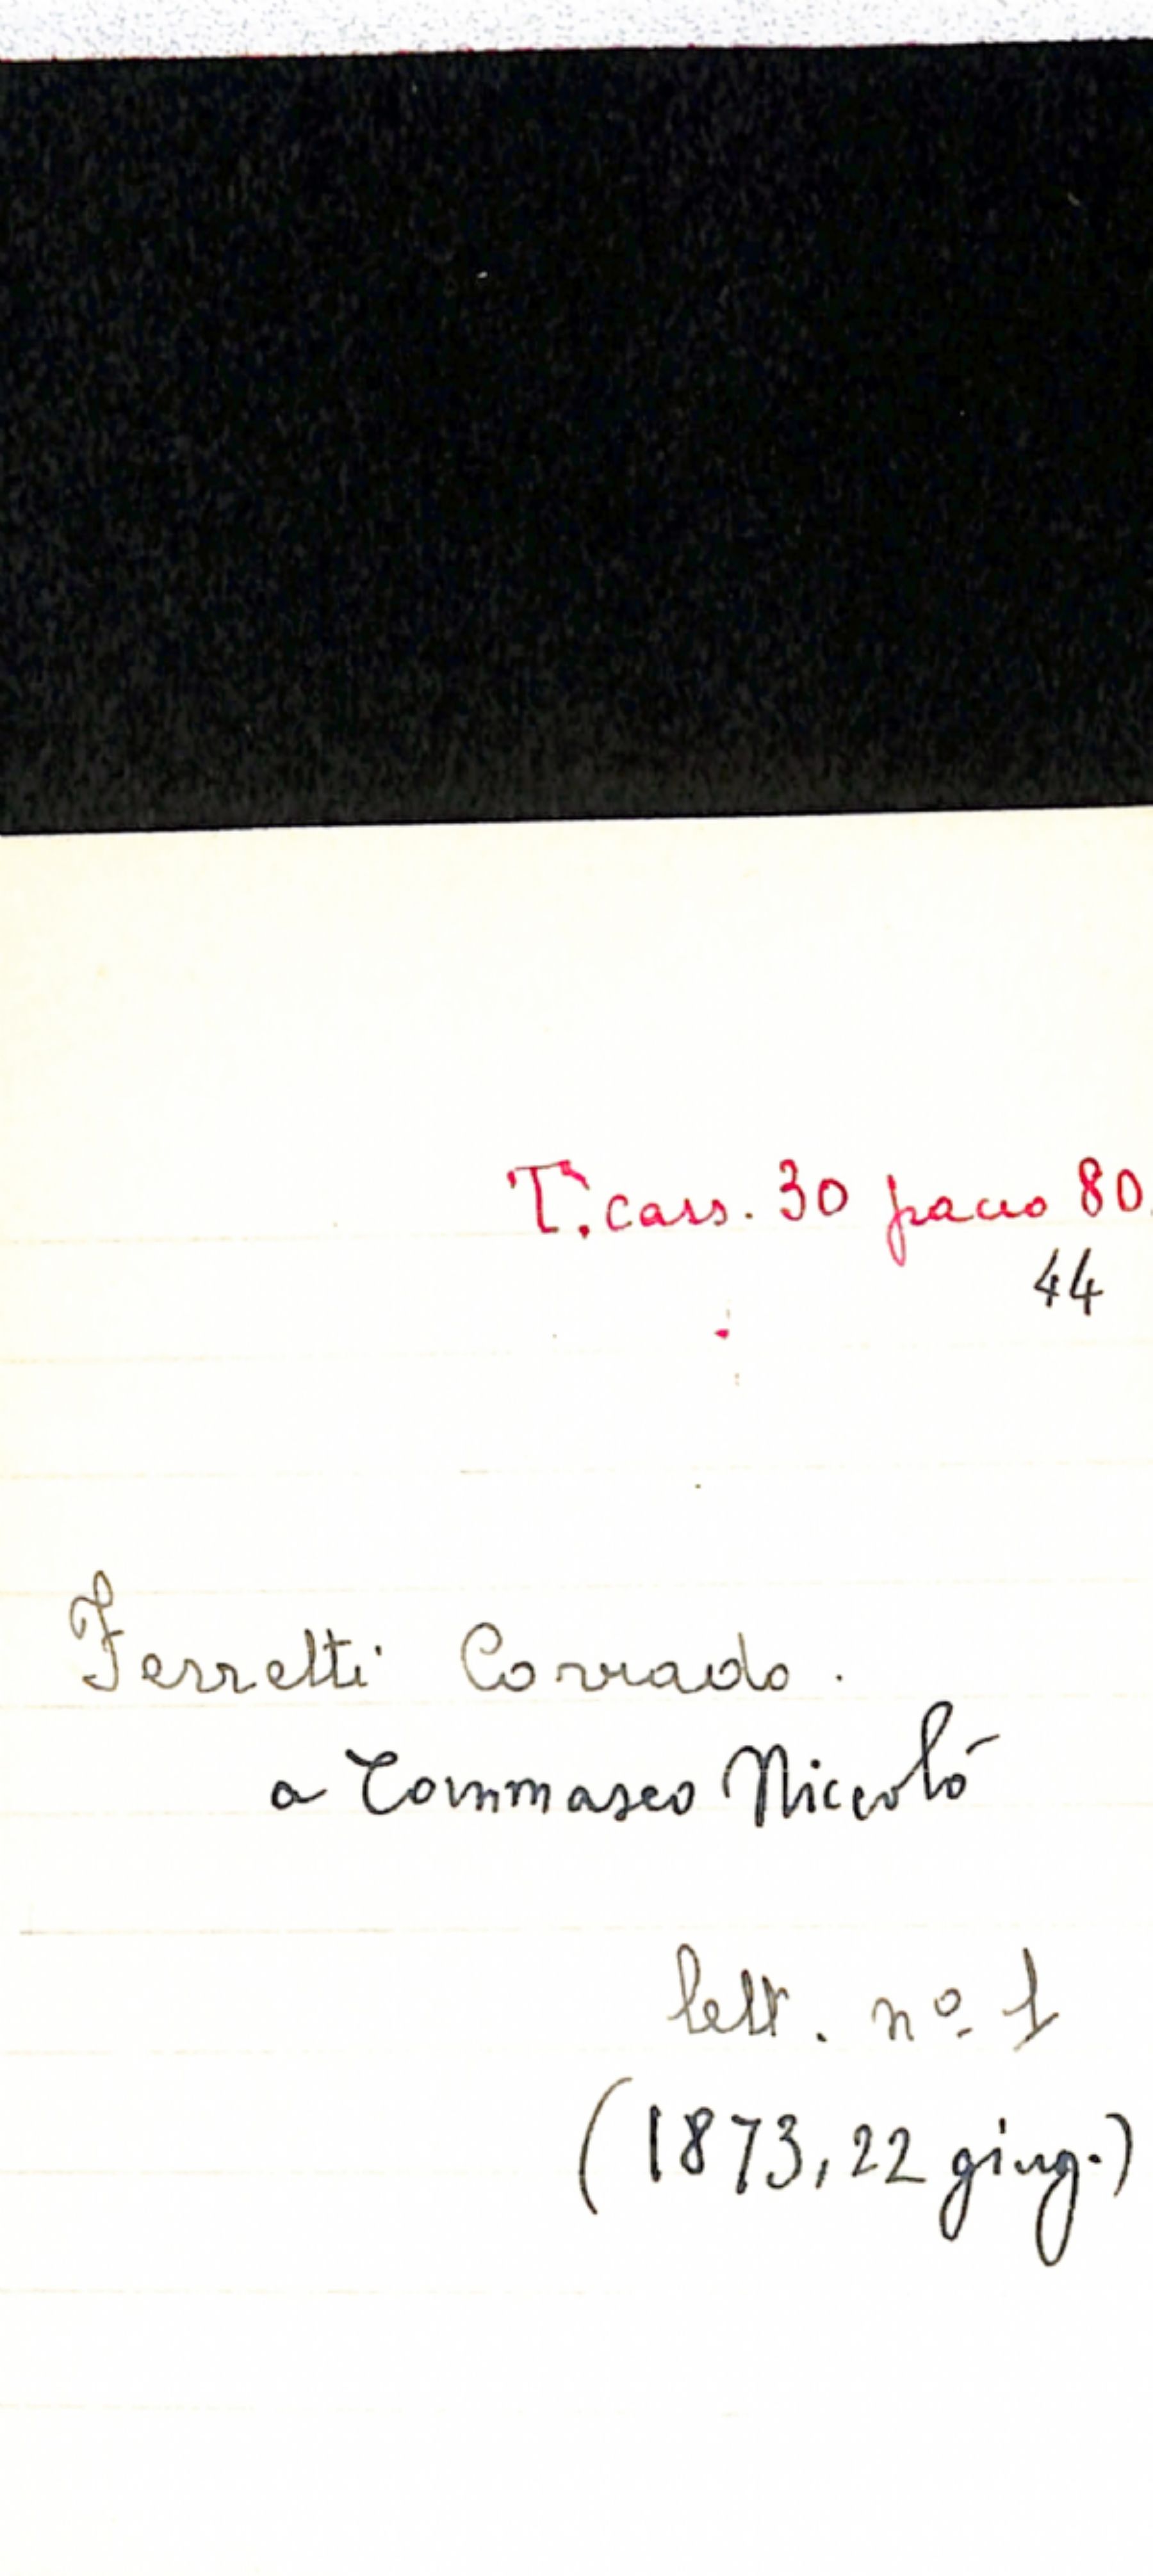 T. cass. 30 pacco 80.
44
Ferretti Corrado.
a Tommaseo Niccolò
lett. nº 1
(1873, 22 giug.)